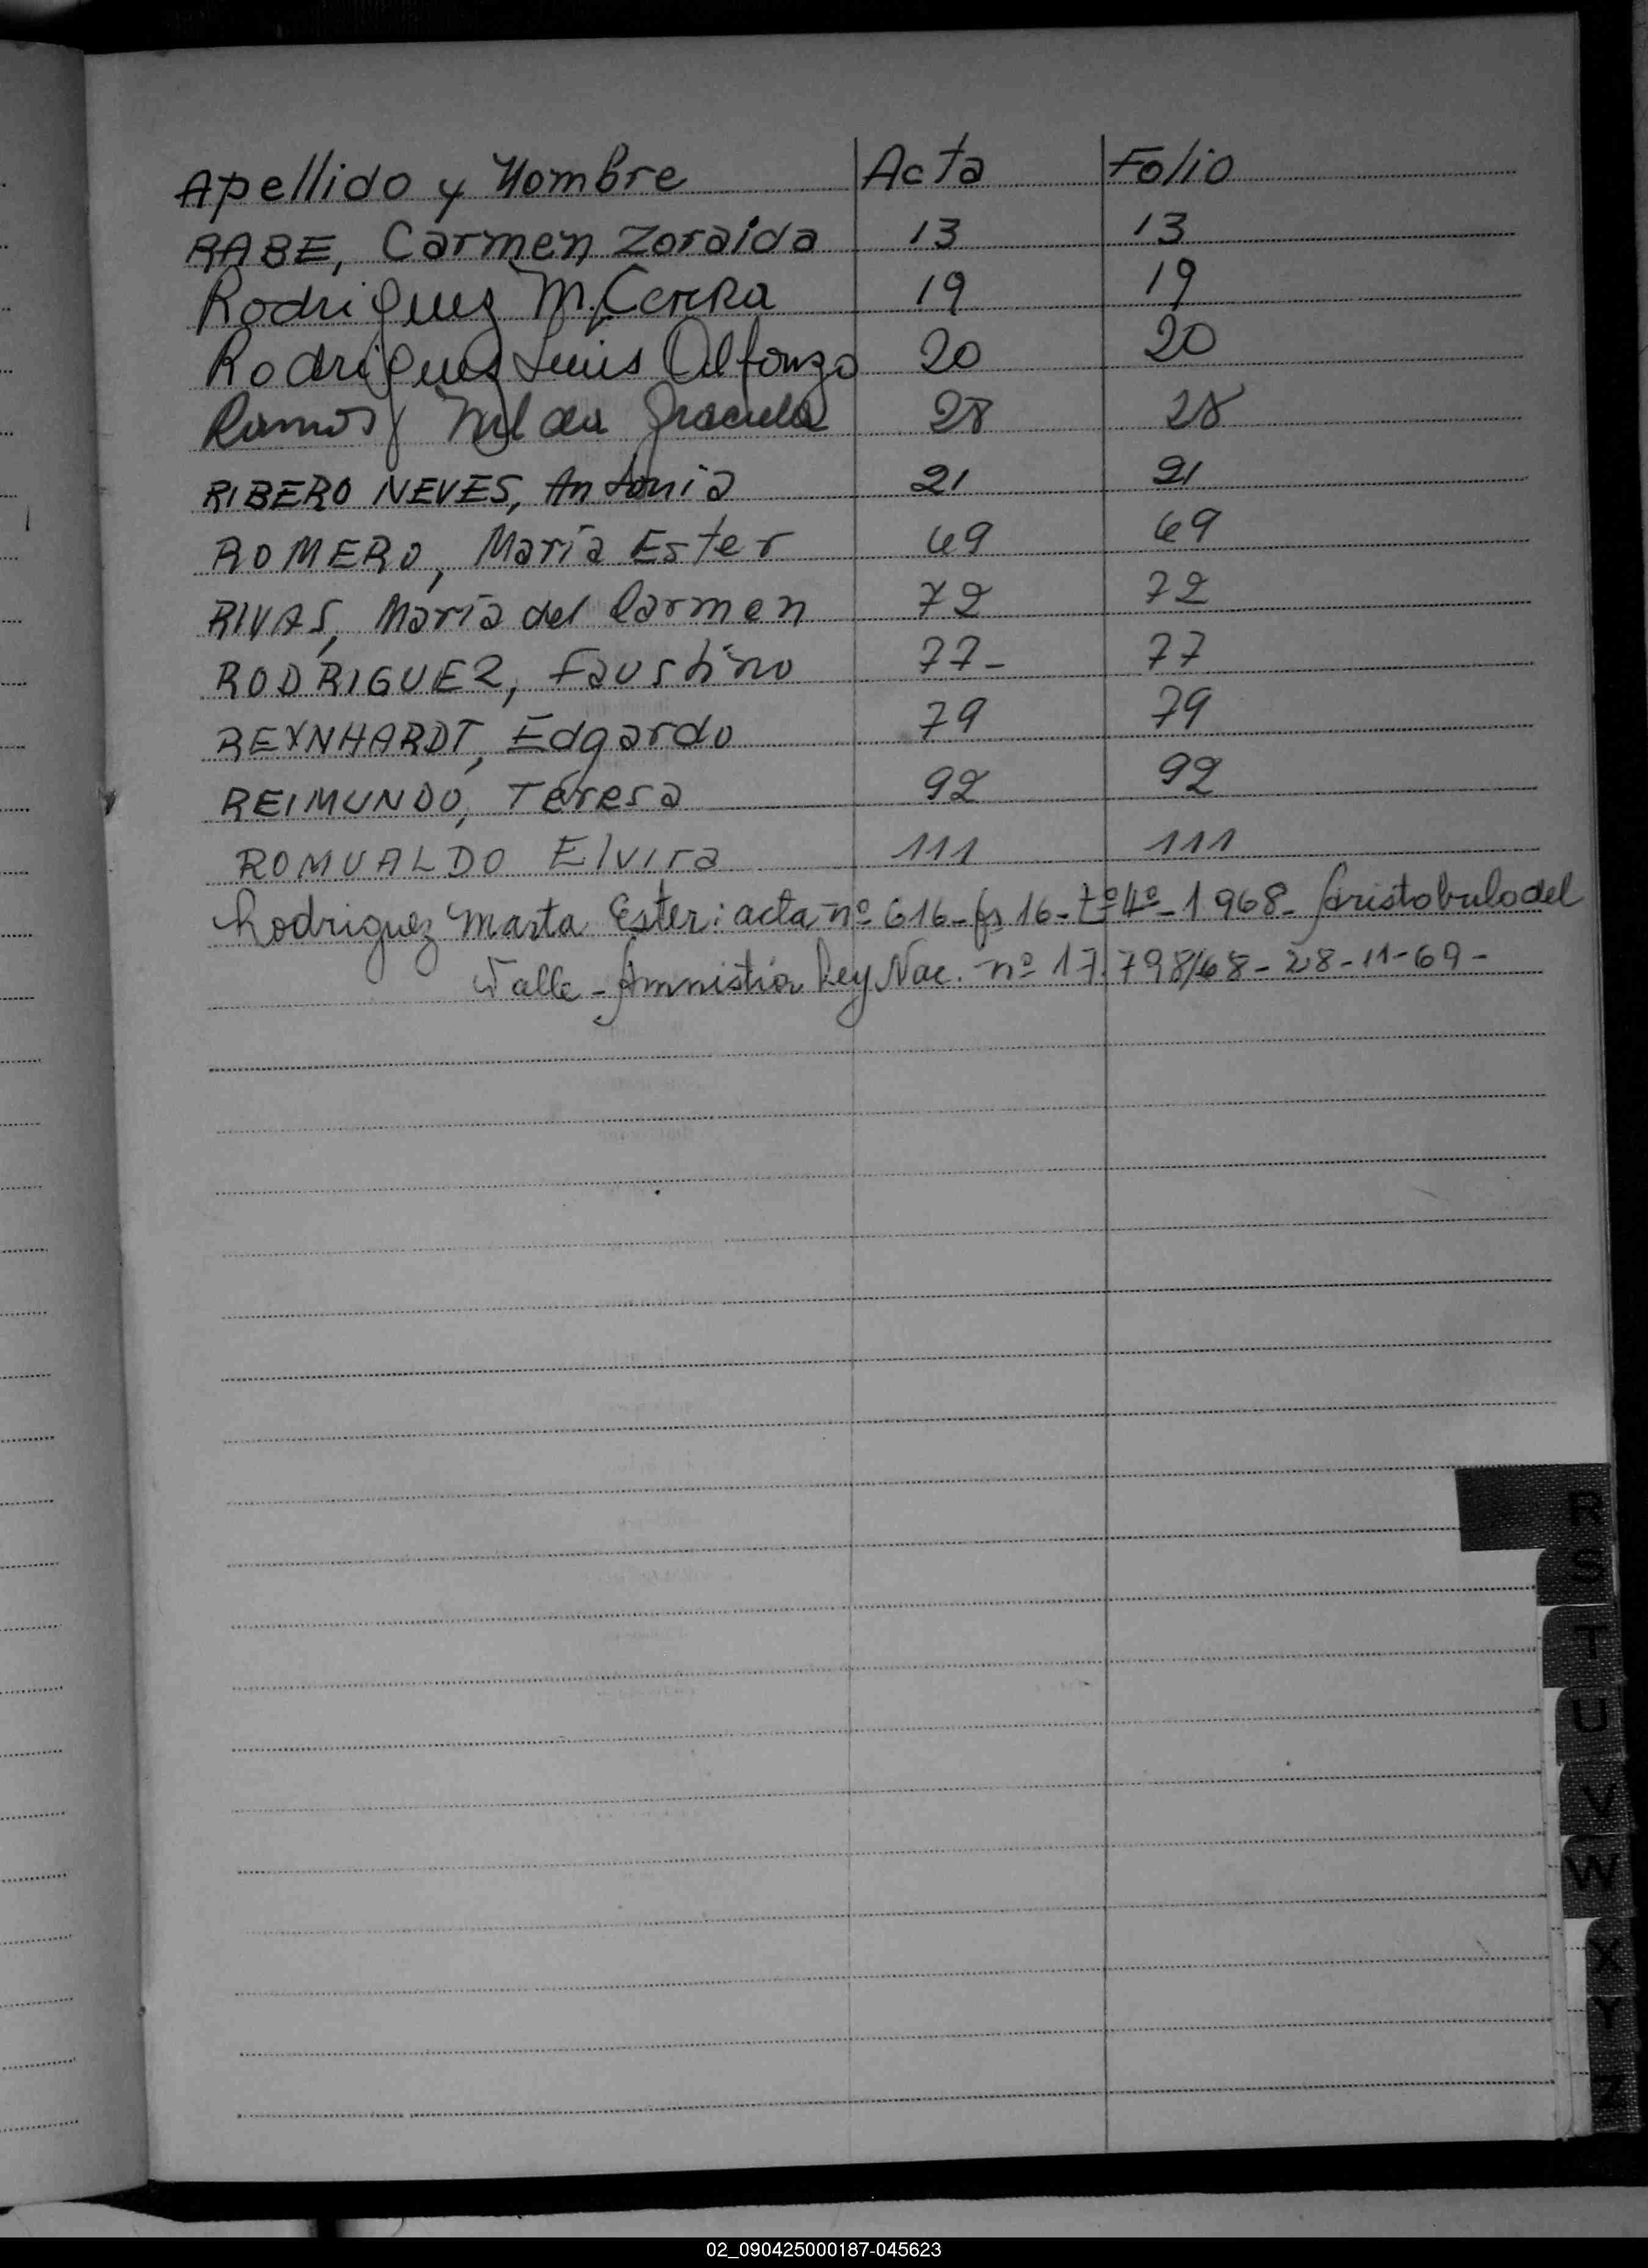 Apellido y Nombre Acta Folio
RABE, Carmen Zoraida 13 13
Rodriguez M. 19 19
Rodriguez Luis Alfonzo 20 20
Ramos Nilda Graciela 28 28
RIBERO NEVES, Antonia 21 21
ROMERO, María Ester 69 69
RIVAS, María del Carmen 72 72
RODRIGUEZ, Faustino 77- 77
REYNHARDT, Edgardo 79 79
REIMUNDO, Teresa 92 92
ROMUALDO Elvira 111 111
Rodriguez Marta Ester: acta nº 616- fs 16- tº 4º- 1.968- Aristobulo del
Valle - Amnistia Ley Nac. nº 17.798/68 - 28-11-69-
R
S
T
U
V
W
X
Y
Z
02_090425000187-045623